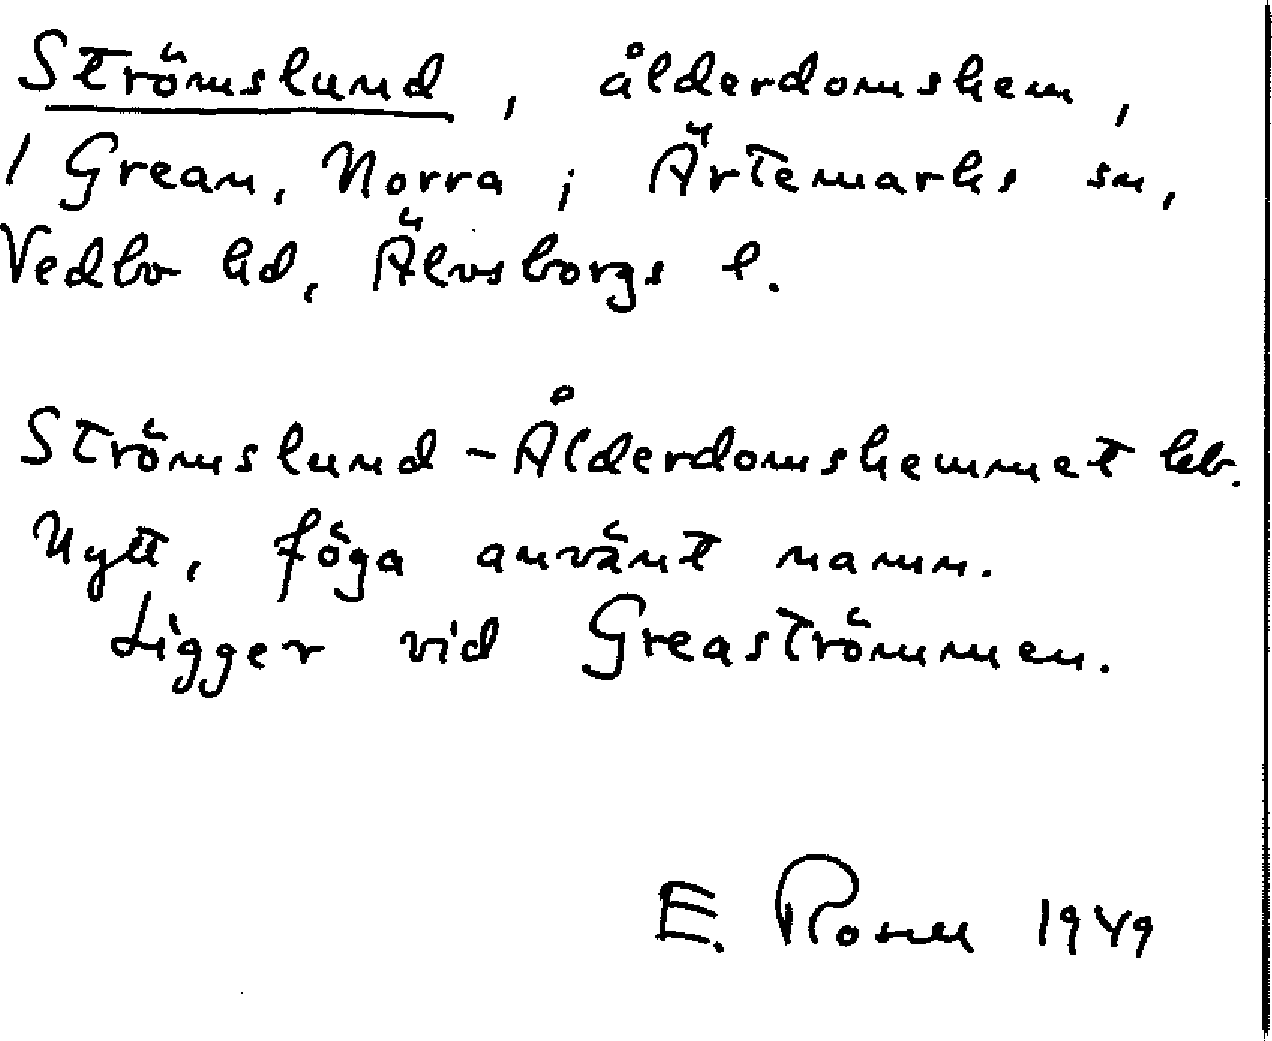 Strömslund, ålderdomshem,
1 Grean, Norra i Ärtemarks sn,
Vedbo hd, Älvsborgs l.
Strömslund - Ålderdomshemmet kb.
Nytt, föga använt namn.
Ligger vid Greaströmmen.
E. 1949